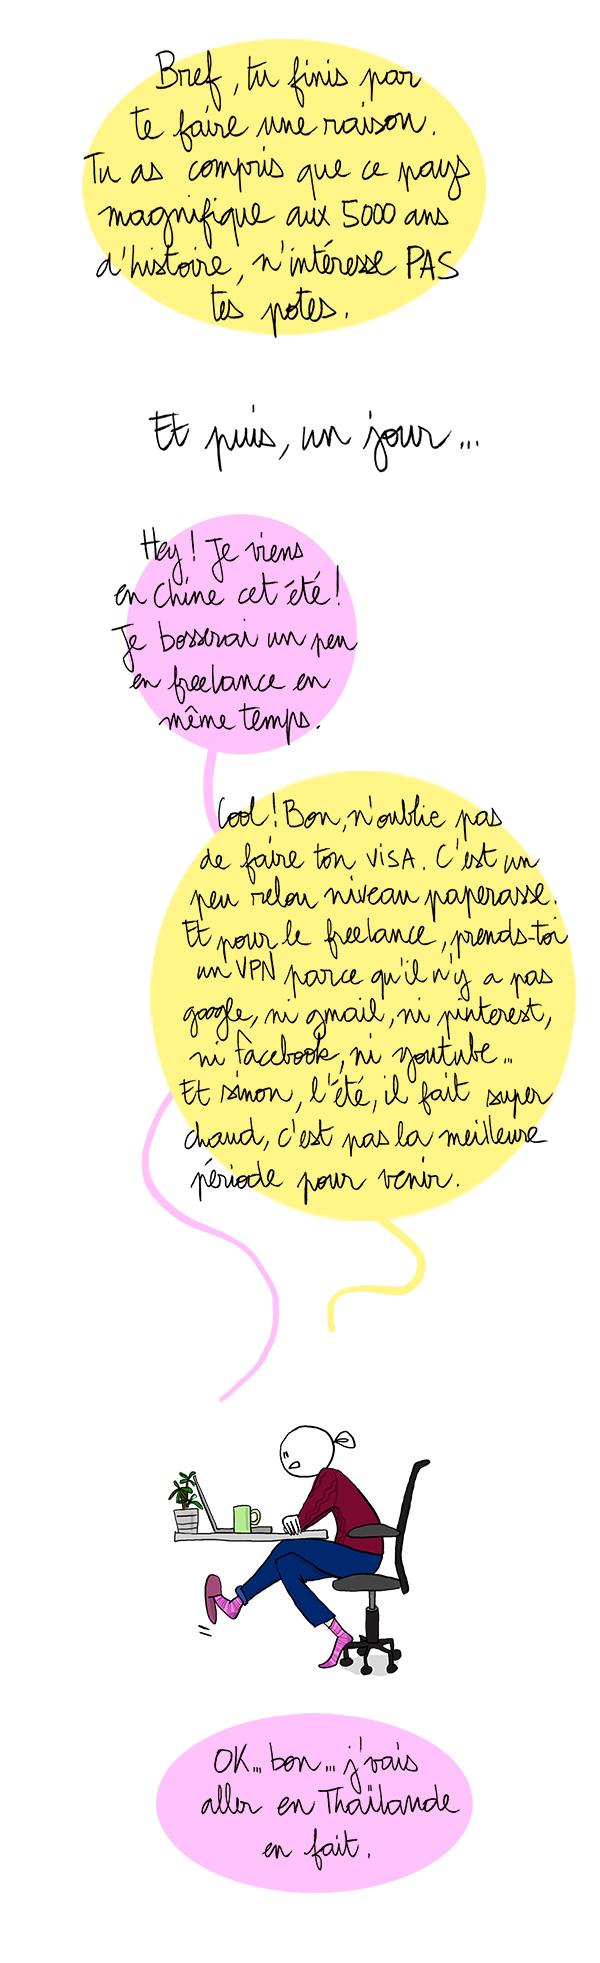 Bref, tu finis par
te faire une raison.
Tu as compris que ce pays
magnifique aux 5000 ans
d'histoire, n'intéresse PAS
tes potes.
Et puis, un jour...
Hey! Je viens
en Chine cet été!
Je bosserai un peu
en freelance en
même temps.
Cool! Bon, n'oublie pas
de faire ton VISA. C'est un
peu relou niveau paperasse.
Et pour le freelance, prends-toi
un VPN parce qu'il n'y a pas
google, ni gmail, ni pinterest,
ni facebook, ni youtube...
Et sinon, l'été, il fait super
chaud, c'est pas la meilleure
période pour venir.
OK... bon... j'vais
aller en Thaïlande
en fait.